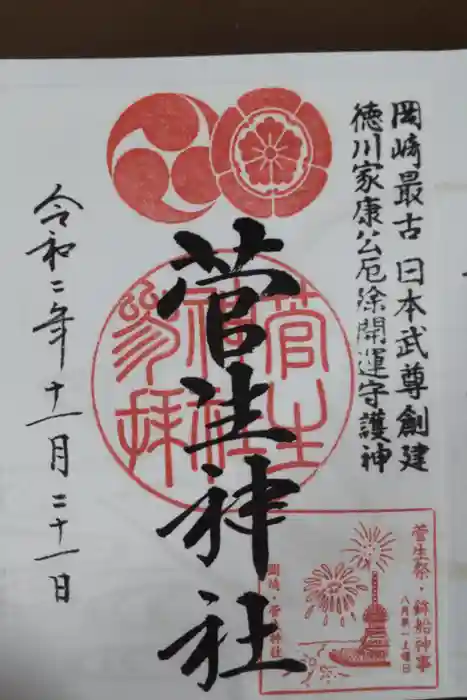 岡崎最古 日本武尊創建
徳川家康公厄除開運守護神
菅生神社
菅生神社参拝
令和二年十一月二十一日
菅生祭・鉾船神事
八月第一土曜日
岡崎・菅生神社